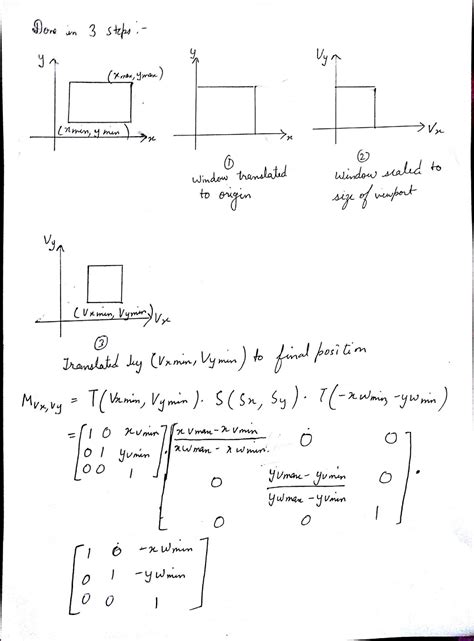 Done in 3 steps :-
y
(xmax, ymax)
(xmin, ymin)
x
y
x
①
Window translated
to origin
Vy
Vx
②
Window scaled to
size of viewport
Vy
(Vxmin, Vymin)
Vx
③
Translated by (Vxmin, Vymin) to final position
MVx,Vy = T(Vxmin, Vymin) . S(Sx, Sy) . T(-xwmin -ywmin)
= [1 0 xvmin] . [xvmax - xvmin / xwmax - xwmin. 0 0]
[0 1 yvmin] [0 yvmax - yvmin / ywmax - yvmin 0] .
[0 0 1] [0 0 1]
[1 0 -xwmin]
[0 1 -ywmin]
[0 0 1]